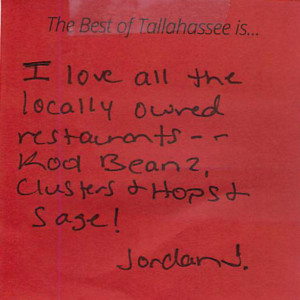 The Best of Tallahassee is...
I love all the
locally owned
restaurants --
Kool Beanz,
Clusters & Hops &
Sage!
Jordan J.